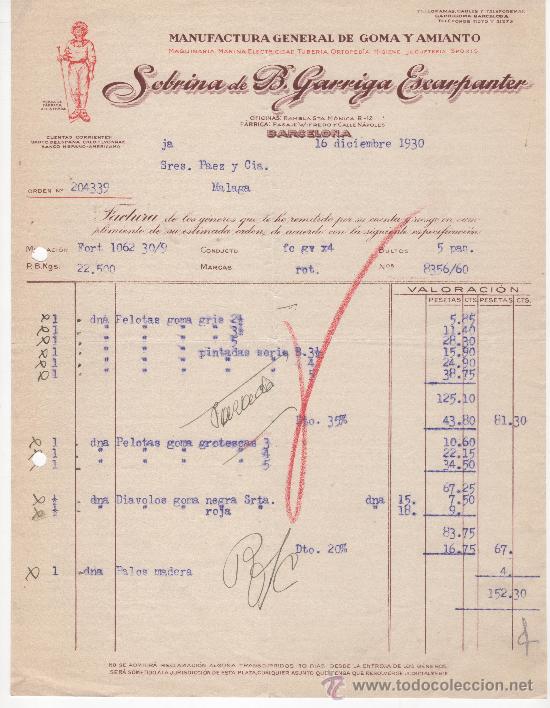 TELEGRAMAS, CABLES Y TELEFONEMAS
GARRIGOMA BARCELONA
MANUFACTURA GENERAL DE GOMA Y AMIANTO
MAQUINARIA MARINA ELECTRICIDAD TUBERIA ORTOPEDIA HIGIENE JUGUETERIA SPORTS
Sobrina de B. Garriga Escarpanter
OFICINAS: RAMBLA STA. MÓNICA, 8-12
FÁBRICA: PASAJE WIFREDO Y CALLE NÁPOLES
BARCELONA
CUENTAS CORRIENTES
BANCO HISPANO-AMERICANO
ja 16 diciembre 1930
Sres. Paez y Cia.
Malaga
ORDEN Nº 204339
Factura de los géneros que le he remitido por su cuenta y riesgo en cum-
plimiento de su estimada orden, de acuerdo con la siguiente especificación:
Fort 1062 30/9 CONDUCTO fc gv x4 BULTOS 5 paq.
P. B. Kgs. 22,500 MARCAS rot. Nos 8356/60
VALORACIÓN
PESETAS CTS. PESETAS CTS.
1 dna Pelotas goma gris 2½ 5.85
1 " " " 3½ 11.40
1 " " " 5 28.30
1 " " pintadas serie B.3½ 15.90
1 " " " " 4 24.90
1 " " " " 5 38.75
125.10
Dto. 35% 43.80 81.30
1 dna Pelotas goma grotescas 3 10.60
1 " " " " 4 22.15
1 " " " " 5 34.50
67.25
½ dna Diavolos goma negra Srta. dna 15. 7.50
½ " " " roja 18. 9.
83.75
Dto. 20% 16.75 67.
1 dna Palos madera 4.
152.30
NO SE ADMITIRÁ RECLAMACIÓN ALGUNA TRANSCURRIDOS 10 DÍAS DESDE LA ENTREGA DE LOS GÉNEROS.
SERÁ SOMETIDO A LA JURISDICCIÓN DE ESTA PLAZA, CUALQUIER ASUNTO QUE TENGA QUE RESOLVERSE JUDICIALMENTE
todocoleccion
www.todocoleccion.net